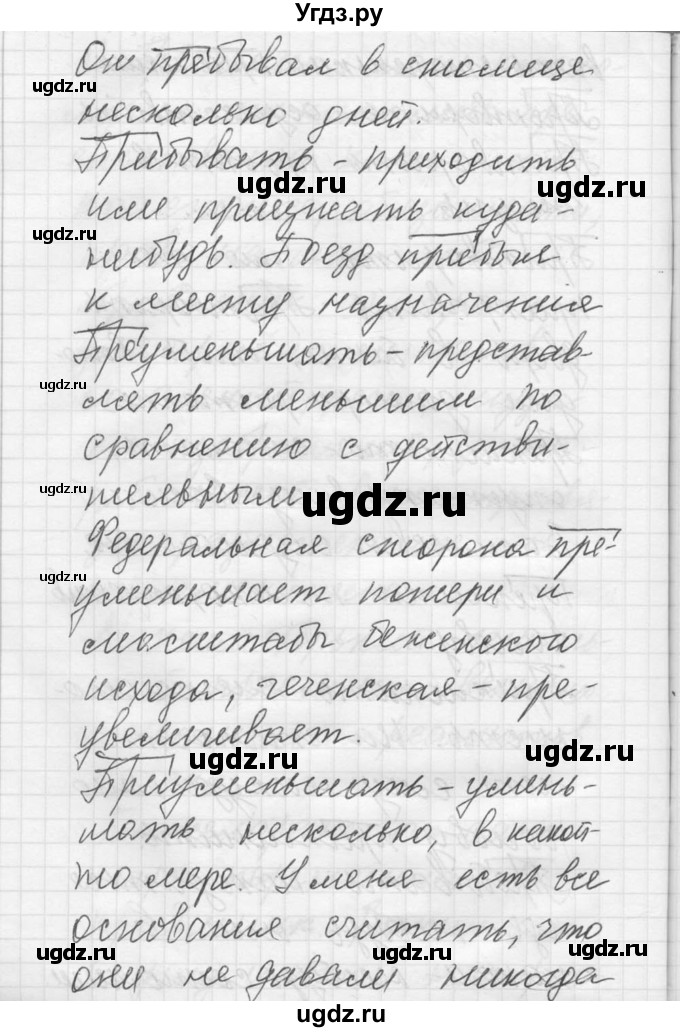 Угдз.ру
Он пребывал в столице
несколько дней.
Прибывать - приходить
или приезжать куда-
нибудь. Поезд прибыл
к месту назначения
Преуменьшать - представ-
лять меньшим по
сравнению с действи-
тельным
Федеральная сторона пре-
уменьшает потери и
масштабы беженского
исхода, чеченская - пре-
увеличивает.
Приуменьшать - умень-
шать несколько, в какой-
то мере. У меня есть все
основания считать, что
они не давали никогда
ugdz.ru
ugdz.ru
ugdz.ru
ugdz.ru
ugdz.ru
ugdz.ru
ugdz.ru
ugdz.ru
ugdz.ru
ugdz.ru
ugdz.ru
ugdz.ru
ugdz.ru
ugdz.ru